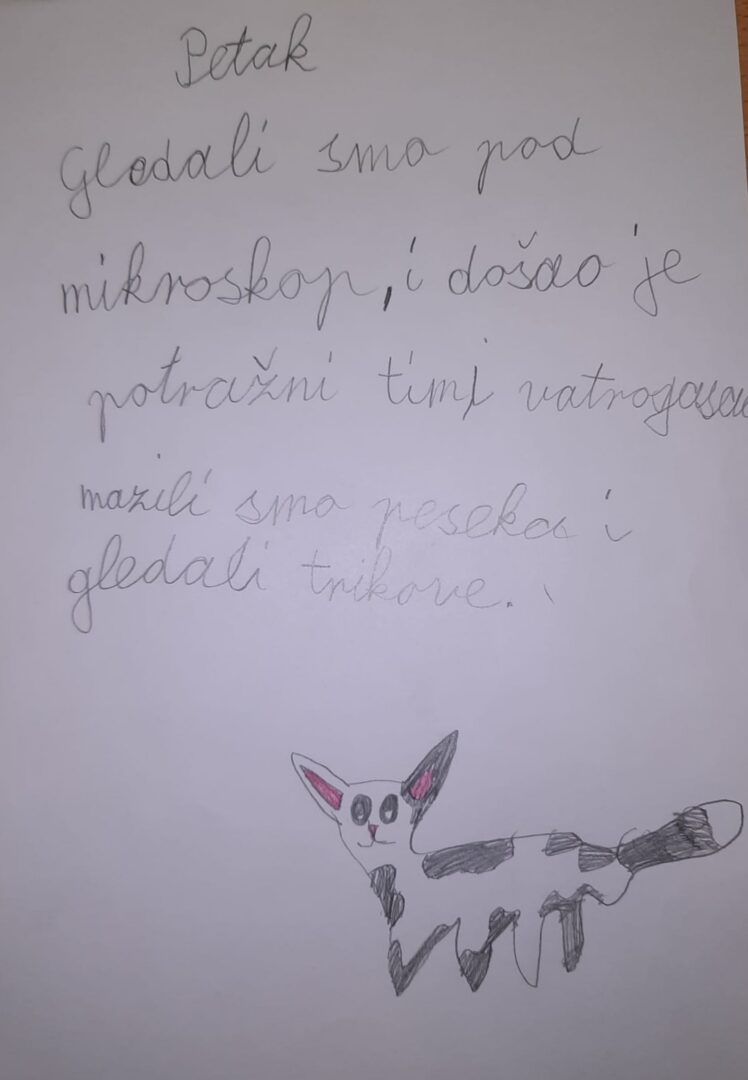 Petak
Gledali smo pod
mikroskop, i došao je
potražni tim vatrogasau
mazili smo peseka i
gledali trikove.